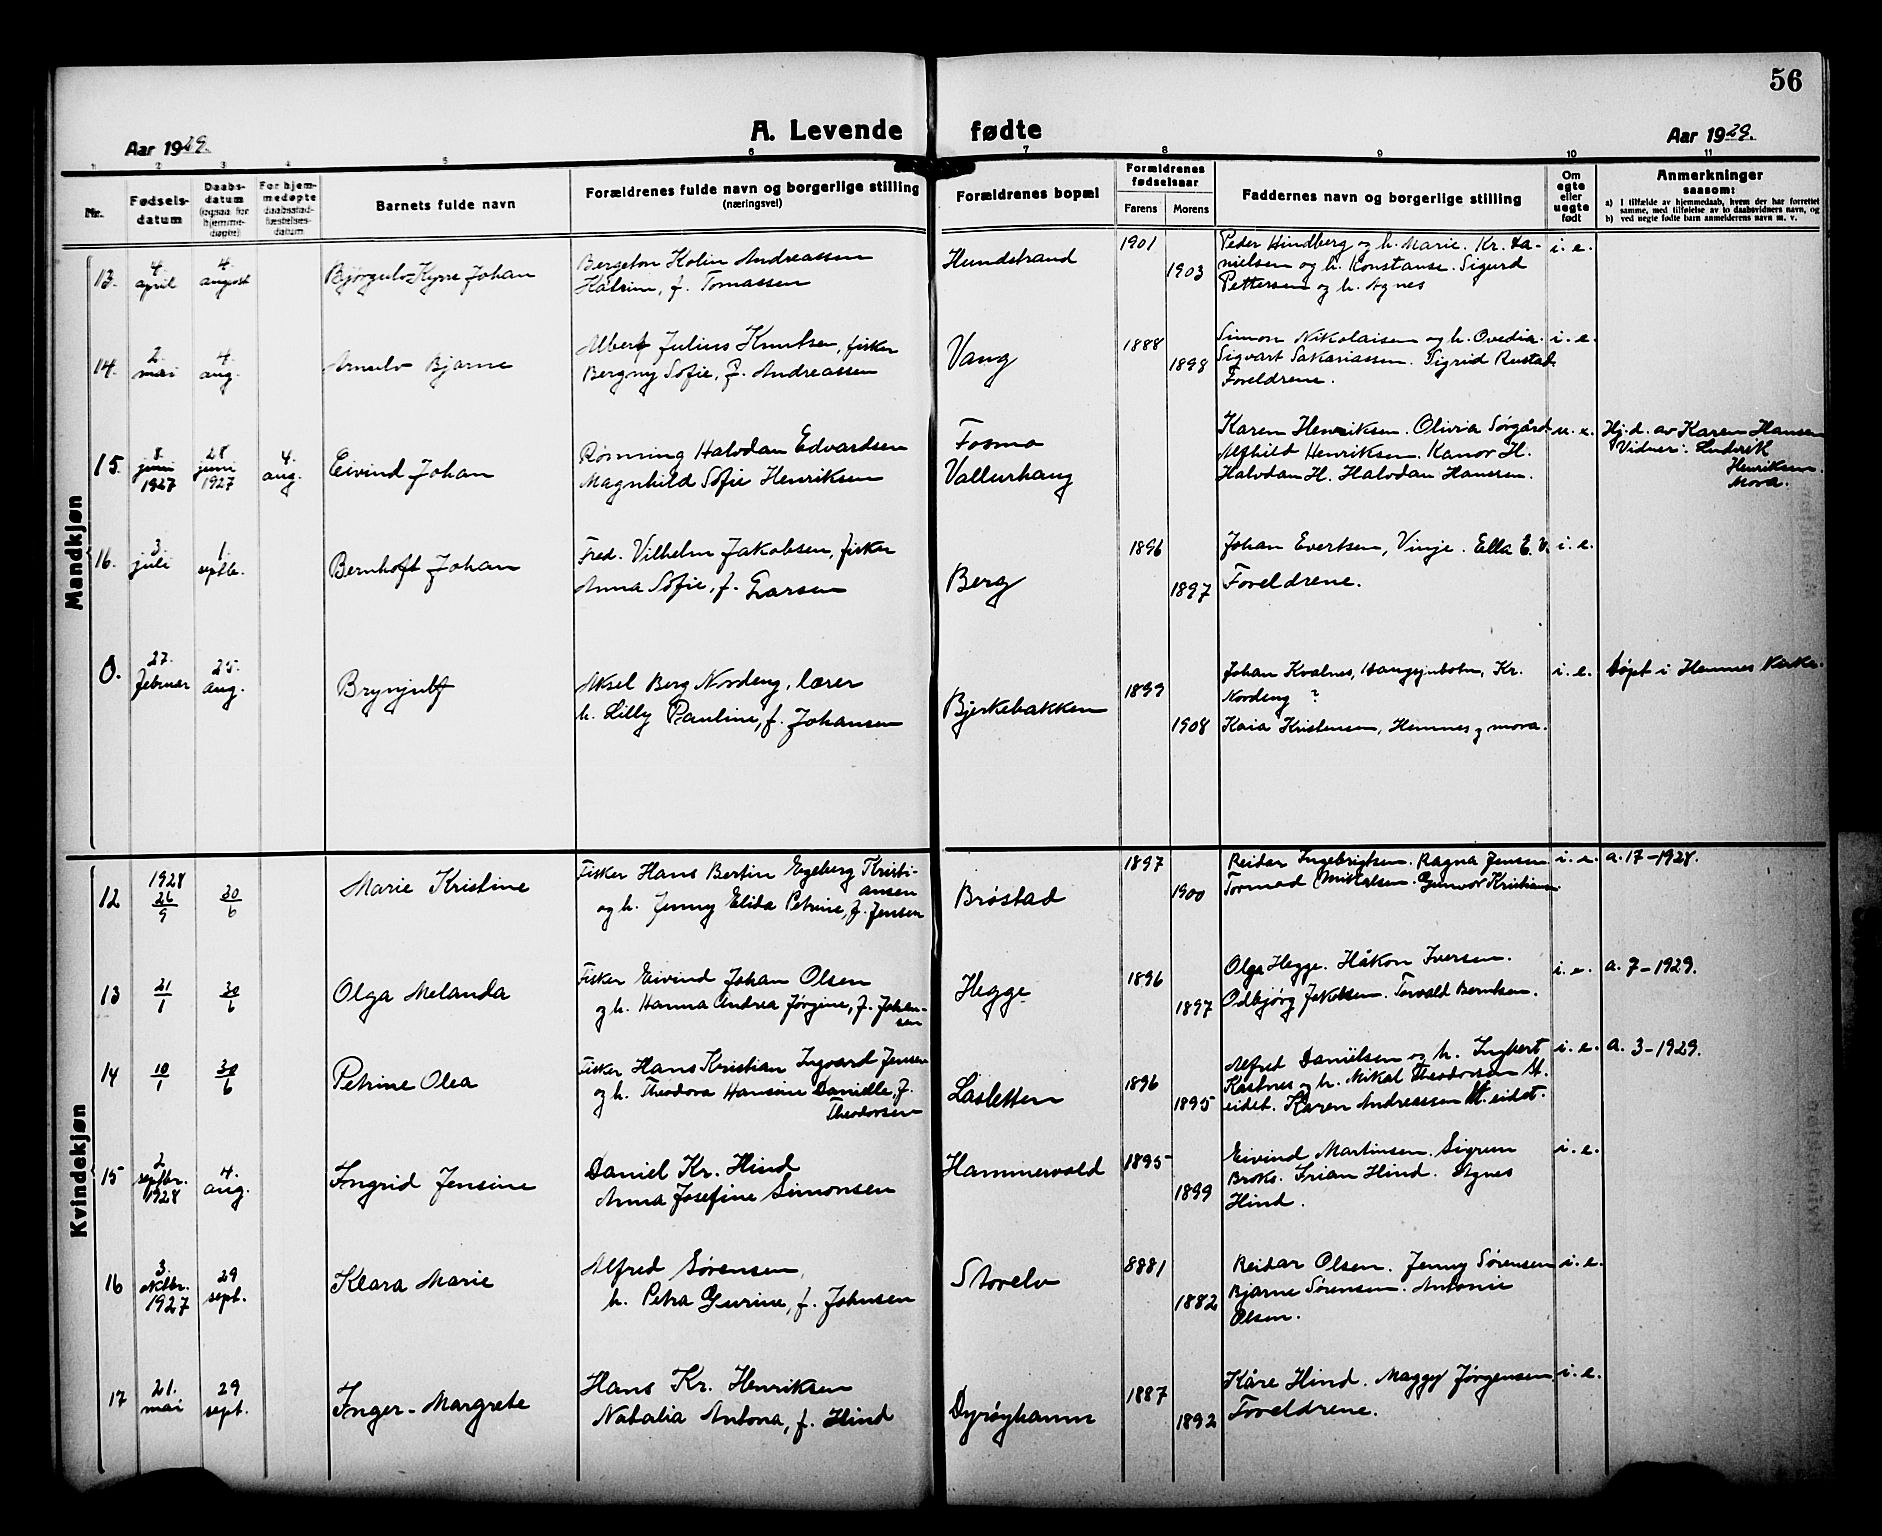 56
A. Levende fødte
Aar 1929.
Aar 1929.
1 2 3 4 5 6 7 8 9 10 11
Nr.
Fødselsdatum
Daabsdatum (ogsaa for hjemmedøpte)
For hjemmedøpte daabsstadfæstelsesdatum
Barnets fulde navn
Forældrenes fulde navn og borgerlige stilling
(næringsvei)
Forældrenes bopæl
Forældrenes fødselsaar
Farens
Morens
Faddernes navn og borgerlige stilling
Om egte eller uegte født
Anmerkninger
saasom:
a) I tilfælde av hjemmedaab, hvem der har forrettet
samme, med tilføielse av to daabsvidners navn, og
b) ved uegte fødte barn anmelderens navn m. v.
Mandkjøn
13. 4. april 4. august Bjørgulv Kyrre Johan
Bergeton Kolin Andreassen
Hatrine, f. Tomassen
Hundstrand 1901 1903
Peder Hindberg og h. Marie. Kr. Da-
nielsen og h. Konstanse. Sigurd
Pettersen og h. Agnes
i. e.
14. 2. mai 4. aug. Arnulv Bjarne
Albert Julius Knutsen, fisker
Bergny Sofie, f. Andreassen
Vang 1888 1898
Simon Nikolaisen og h. Ovedia.
Sigvart Sakariassen. Sigrid Rustad.
Foreldrene.
i. e.
15. 8. juni 1927 28 juni 1927 4. aug. Eivind Johan
Rønning Halvdan Edvardsen
Magnhild Sofie Henriksen
Fosmo
Vallurhaug
Karen Henriksen. Olivia Sørgård
Alfhild Henriksen. Kanor H.
Halvdan H. Halvdan Hansen.
u. e.
Hj.d. av Karen Hansen
Vidner: Ludvik
Henriksen.
Mora.
16. 3. juli 1. septb. Bernhoft Johan
Fred. Vilhelm Jakobsen, fisker
Anna Sofie, f. Larsen
Berg 1896 1897
Johan Evertsen, Vinje. Ella E. V.
Foreldrene.
i. e.
0. 27. februar 25. aug. Brynjulf
Aksel Berg Nordeng, lærer
h. Lilly Pauline, f. Johansen
Bjerkebakken 1899 1908
Johan Kvalnes, Kr.
Nordeng ?
Kaia Kristensen, Hemnes og mora.
i. e.
Døpt i Hemnes Kirke.
Kvindekjøn
12 1928 26/9 30/6 Marie Kristine
Fisker Hans Bertin Engeberg Kristi-
ansen
og h. Jenny Elida Petrine, f. Jensen
Brøstad 1897 1900
Reidar Ingebrigtsen. Ragna Jensen
Tormod Mikkelsen. Gunvor Kristians.
i. e. a. 17-1928.
13 21/1 30/6 Olga Melanda
Fisker Eivind Johan Olsen
og h. Hanna Andrea Jørgine, f. Johan-
sen
Hegge 1896 1897
Olga Hegge. Håkon Iversen.
Odbjørg Jakobsen. Torvald Berntsen.
i. e. a. 7-1929.
14 10/1 30/6 Petrine Olea
Fisker Hans Kristian Ingvard Jensen
og h. Theodora Hansine Danielle, f.
Theodorsen
Lasletten 1896 1895
Alfred Danielsen og h. Ingbert
Kastnes og h. Mikal Theodorsen M.
eidet. Karen Andreassen M. eidet.
i. e. a. 3-1929.
15 2. septbr. 1928 4. aug. Ingrid Jensine
Daniel Kr. Hind
Anna Josefine Simonsen
Hammervold 1895 1899
Eivind Martinsen. Sigrun
Broks. Irian Hind. Agnes
Hind.
i. e.
16 3. oktbr. 1927 29 sept. Klara Marie
Alfred Sørensen,
h. Petra Gurine, f. Johnsen
Storelv 8881 1882
Reidar Olsen. Jenny Sørensen
Bjarne Sørensen. Antonie
Olsen.
i. e.
17 21. mai 29 sept. Inger-Margrete
Hans Kr. Henriksen
Natalia Antona, f. Hind
Dyrøyhamn 1887 1892
Kåre Hind. Maggy Jørgensen
Foreldrene.
i. e.